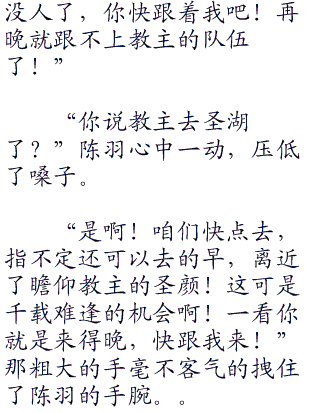 没人了，你快跟着我吧！再
晚就跟不上教主的队伍
了！”
“你说教主去圣湖
了？”陈羽心中一动，压低
了嗓子。
“是啊！咱们快点去，
指不定还可以去的早，离近
了瞻仰教主的圣颜！这可是
千载难逢的机会啊！一看你
就是来得晚，快跟我来！”
那粗大的手毫不客气的拽住
了陈羽的手腕。。